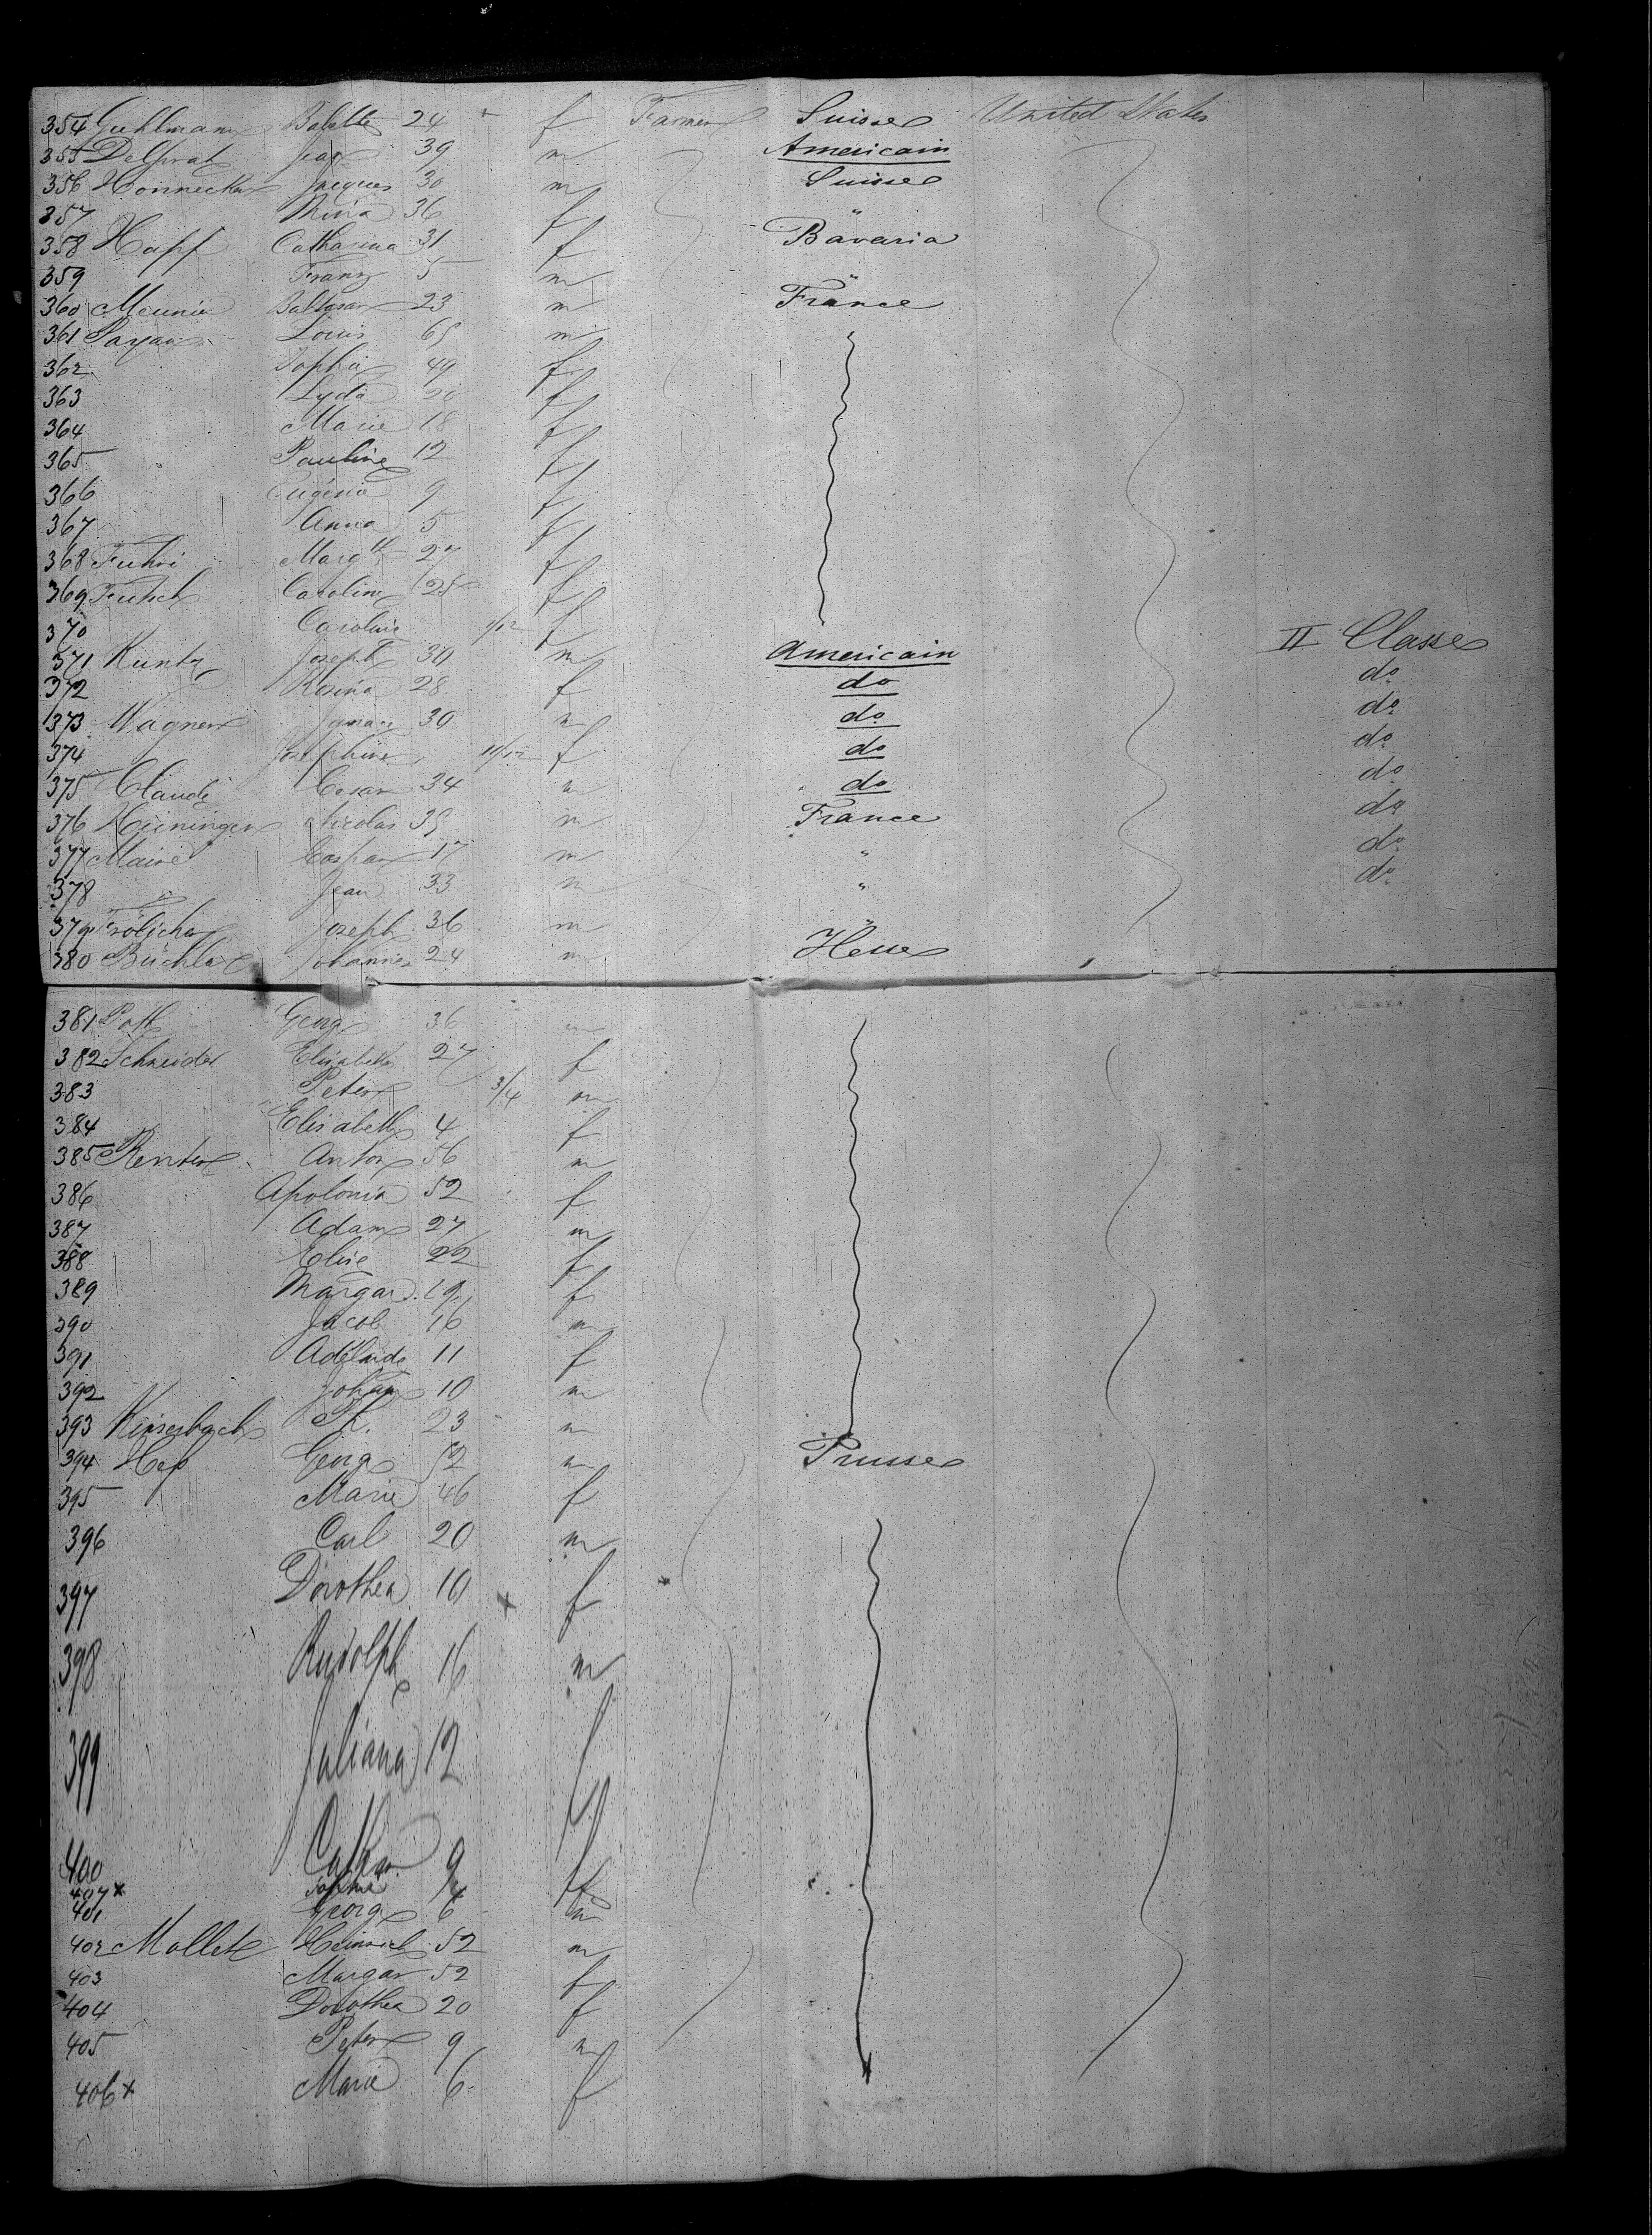 354 Guhlmann Babette 24 " f Farmer Suisse United States
355 Delprat Jean 39 m Americain
356 Honnecker Jacques 30 m Suisse
357 Rosina 36 f "
358 Hapf Catharina 31 f Bavaria
359 Franz 5 m "
360 Meunier Baltasar 23 m France
361 Payan Louis 65 m
362 Sophie 49 f
363 Lydia 20 f
364 Marie 18 f
365 Pauline 12 f
366 Eugénie 9 f
367 Anna 5 f
368 Fuhri Margth 27 f
369 Futsch Caroline 25 f
370 Caroline 1/12 f
371 Kuntz Joseph 30 m Americain II Classe
372 Rosina 28 f do do
373 Wagner Ignace 30 m do do
374 Josephine 11/12 f do do
375 Claude Cesar 34 m do do
376 Heiningen Nicolas 35 m France do
377 Maire Caspar 17 m " do
378 Jean 33 m " do
379 Frölicher Joseph 36 m "
380 Büchler Johannes 24 m Hesse
381 Poth Georg 36 m
382 Schneider Elisabeth 27 f
383 Peter 3/4 m
384 Elisabeth 4 f
385 Renter Anton 56 m
386 Apolonia 52 f
387 Adam 27 m
388 Elise 22 f
389 Margar. 19 f
390 Jacob 16 m
391 Adelaide 11 f
392 Johann 10 m
393 Kinsesbach 23 m
394 Hess Georg 52 m Prusse
395 Marie 46 f
396 Carl 20 m
397 Dorothea 10 f
398 Rudolph 16 m
399 Juliana 12 f
400 Cathar. 9 f
407 x Sophia 4 f
401 Georg 6 m
402 Mallet Heinrich 52 m
403 Margar 52 f
404 Dorothea 20 f
405 Peter 9 m
406 x Marie 6 f